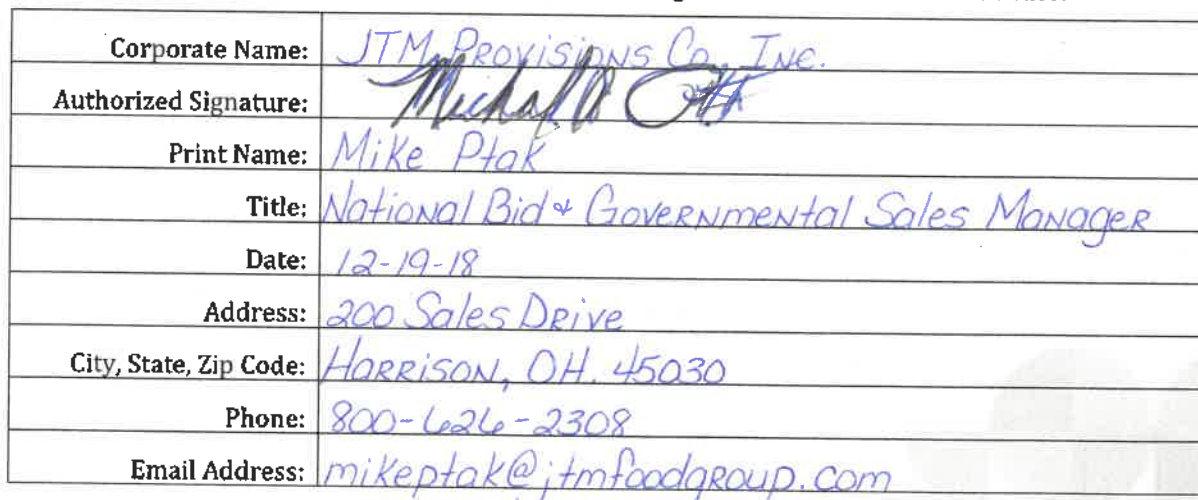 Corporate Name: JTM Provisions Co., Inc.
Authorized Signature:
Print Name: Mike Ptak
Title: National Bid & Governmental Sales Manager
Date: 12-19-18
Address: 200 Sales Drive
City, State, Zip Code: Harrison, OH. 45030
Phone: 800-626-2308
Email Address: mikeptak@jtmfoodgroup.com